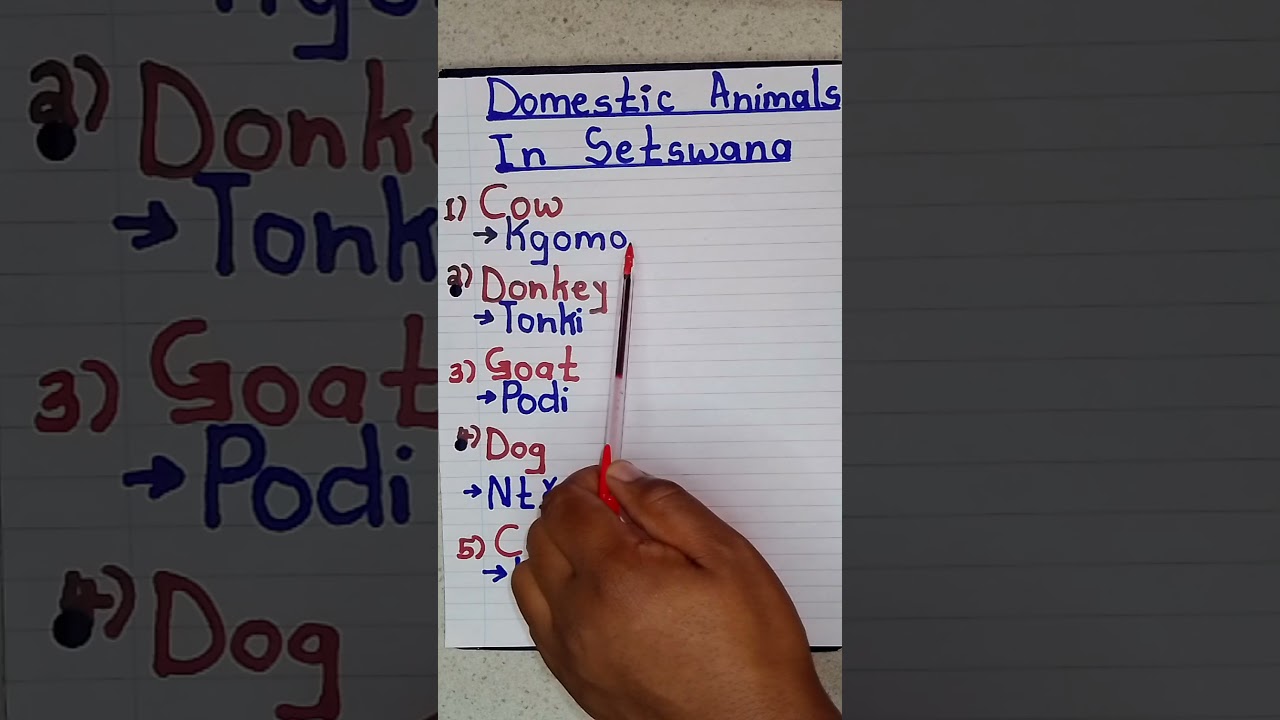 Domestic Animals
In Setswana
1) Cow
→ Kgomo
2) Donkey
→ Tonki
3) Goat
→ Podi
4) Dog
5)